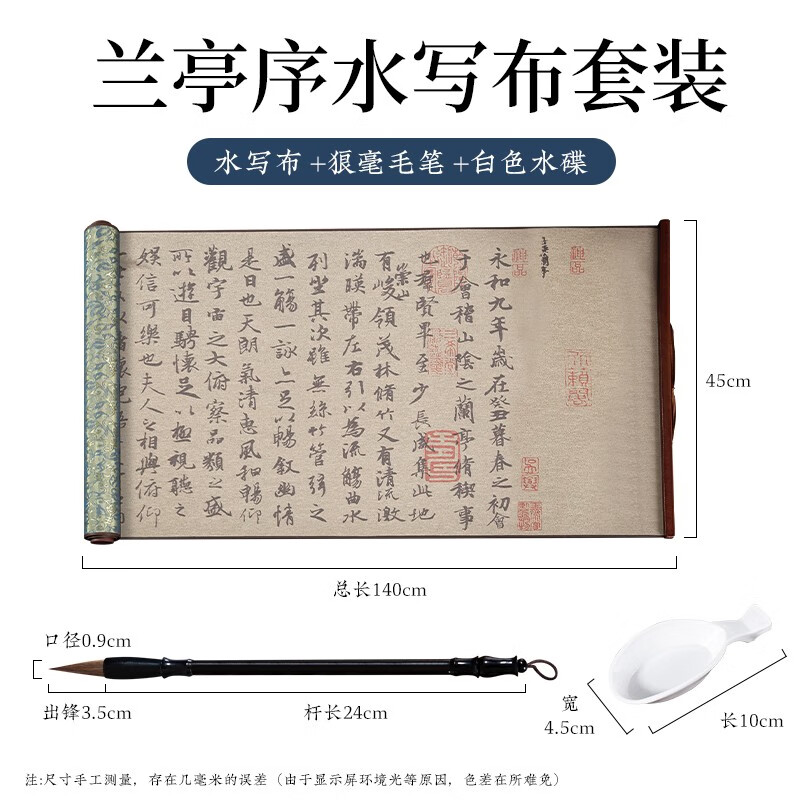 兰亭序水写布套装
水写布+狼毫毛笔+白色水碟
永和九年歲在癸丑暮春之初會
于會稽山陰之蘭亭脩稧事
也群賢畢至少長咸集此地
有崇山峻領茂林脩竹又有清流激
湍暎帶左右引以為流觴曲水
列坐其次雖無絲竹管弦之
盛一觴一詠亦足以暢敘幽情
是日也天朗氣清惠風和暢仰
觀宇宙之大俯察品類之盛
所以遊目騁懷足以極視聽之
娛信可樂也夫人之相與俯仰
45cm
总长140cm
口径0.9cm
出锋3.5cm
杆长24cm
宽
4.5cm
长10cm
注:尺寸手工测量，存在几毫米的误差（由于显示屏环境光等原因，色差在所难免）